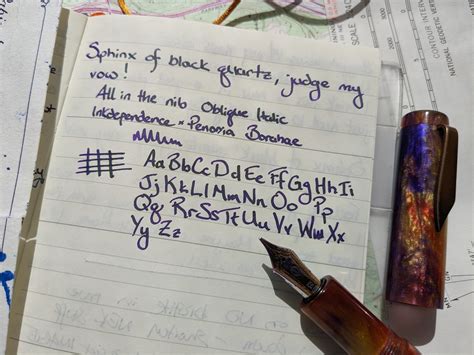 Sphinx of black quartz, judge my
vow!
All in the nib Oblique Italic
Inkdependence × Penonia Borahae
Aa Bb Cc Dd Ee Ff Gg Hh Ii
Jj Kk Ll Mm Nn Oo Pp
Qq Rr Ss Tt Uu Vv Ww Xx
Yy Zz
SCALE
CONTOUR INTERV